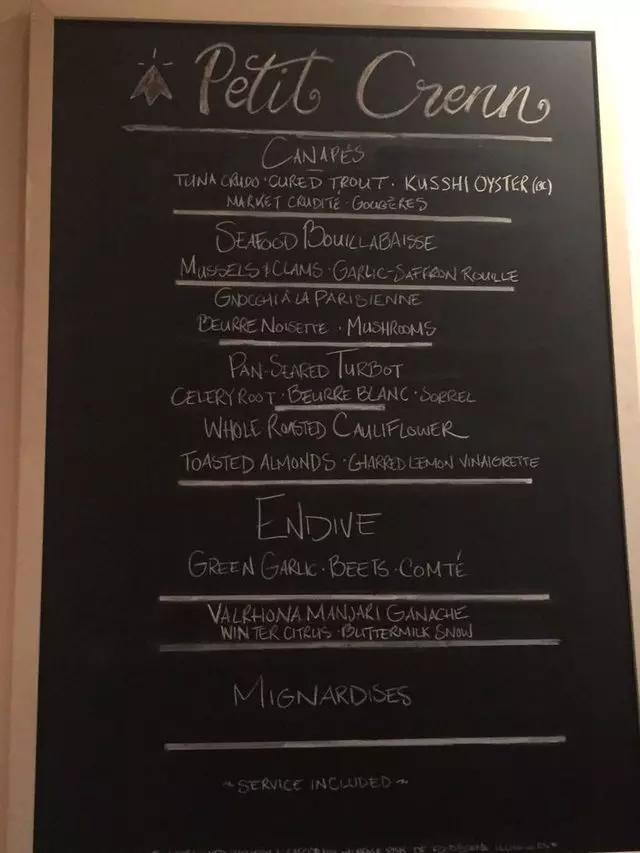 Petit Crenn
CANAPÉS
TUNA CRUDO · CURED TROUT · KUSSHI OYSTER (BC)
MARKET CRUDITÉ · GOUGÈRES
SEAFOOD BOUILLABAISSE
MUSSELS & CLAMS · GARLIC-SAFFRON ROUILLE
GNOCCHI À LA PARISIENNE
BEURRE NOISETTE · MUSHROOMS
PAN-SEARED TURBOT
CELERY ROOT · BEURRE BLANC · SORREL
WHOLE ROASTED CAULIFLOWER
TOASTED ALMONDS · CHARRED LEMON VINAIGRETTE
ENDIVE
GREEN GARLIC · BEETS · COMTÉ
VALRHONA MANJARI GANACHE
WINTER CITRUS · BUTTERMILK SNOW
MIGNARDISES
~ SERVICE INCLUDED ~